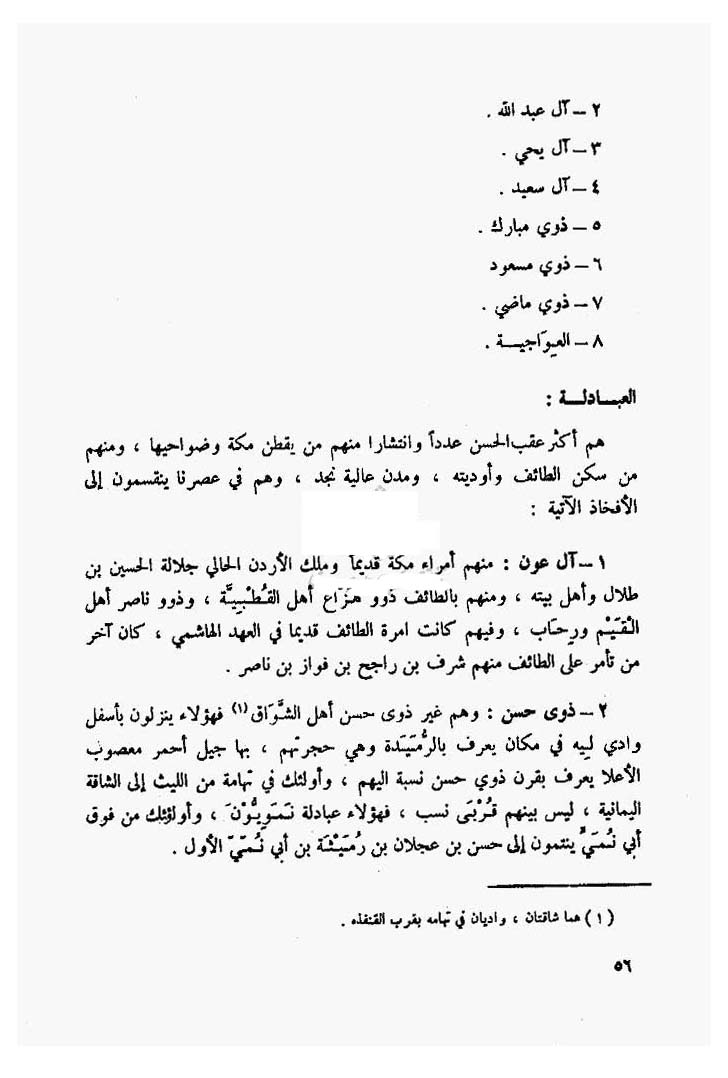 ٢ – آل عبد الله .
٣ – آل يحي .
٤ – آل سعيد .
٥ – ذوي مبارك .
٦ – ذوي مسعود
٧ – ذوي ماضي .
٨ – العيوَاجيـــة .
العبــادلــة :
هم أكثر عقب الحسن عدداً وانتشارا منهم من يقطن مكة وضواحيها ، ومنهم
من سكن الطائف وأوديته ، ومدن عالية نجد ، وهم في عصرنا ينقسمون إلى
الأفخاذ الآتية :
١ – آل عون : منهم أمراء مكة قديماً وملك الأردن الحالي جلالة الحسين بن
طلال وأهل بيته ، ومنهم بالطائف ذوو هزاع أهل القُطْبِيَّة ، وذوو ناصر أهل
القَيْم ورِحَاب ، وفيهم كانت امرة الطائف قديما في العهد الهاشمي ، كان آخر
من تأمر على الطائف منهم شرف بن راجح بن فواز بن ناصر .
٢ – ذوى حسن : وهم غير ذوى حسن أهل الشَّوَاق (١) فهؤلاء ينزلون بأسفل
وادي لِيه في مكان يعرف بالرُّمَيْدة وهي حجرتهم ، بها جيل أحمر معصوب
الأعلا يعرف بقرن ذوي حسن نسبة اليهم ، وأولئك في تهامة من الليث إلى الشاقة
اليمانية ، ليس بينهم قُرْبَى نسب ، فهؤلاء عبادلة نَمَوِيُّوْنَ ، وأولؤئك من فوق
أبي نُمَيٍّ ينتمون إلى حسن بن عجلان بن رُمَيْثَة بن أبي نُمَيّ الأول .
( ١ ) هما شاقتان ، واديان في تهامه بقرب القنفذه .
٥٦